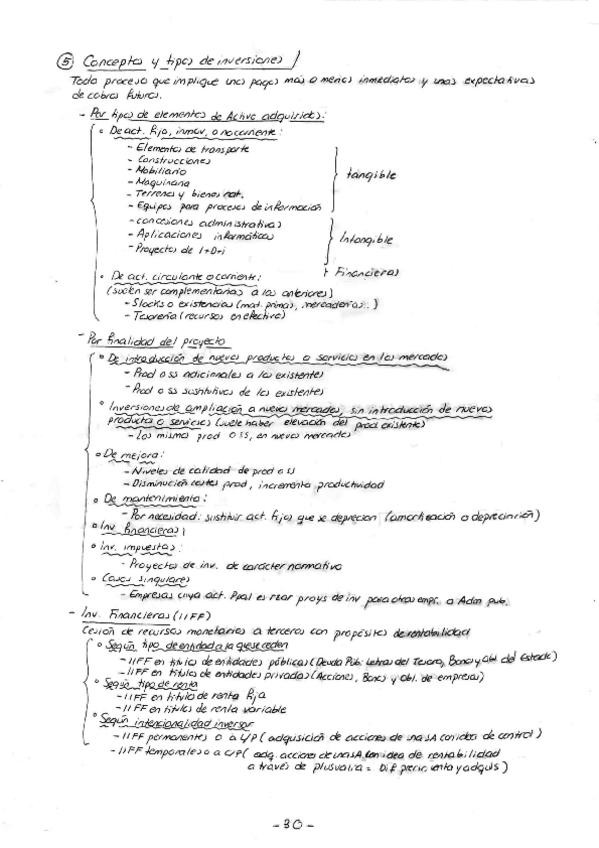 ⑤ Conceptos y tipos de inversiones /
Todo proceso que implique unos pagos más o menos inmediatos y unas expectativas
de cobros futuros.
- Por tipos de elementos de Activo adquiridos:
◦ De act. fijo, inmov. o no corriente:
- Elementos de transporte
- Construcciones
- Mobiliario
- Maquinaria
- Terrenos y bienes nat.
- Equipos para procesos de información
tangible
- concesiones administrativas
- Aplicaciones informáticas
- Proyectos de I+D+i
Intangible
Financieras
◦ De act. circulante o corriente:
(suelen ser complementarias a las anteriores)
- Stocks o existencias (mat. primas, mercaderías..)
- Tesorería (recursos en efectivo)
- Por finalidad del proyecto
◦ De introducción de nuevos productos o servicios en los mercados
- Prod o ss adicionales a los existentes
- Prod o ss sustitutivos de los existentes
◦ Inversiones de ampliación a nuevos mercados, sin introducción de nuevos
productos o servicios (suele haber elevación del prod existente)
- Los mismos prod o ss, en nuevos mercados
◦ De mejora:
- Niveles de calidad de prod o ss
- Disminución costes prod, incrementa productividad
◦ De mantenimiento:
- Por necesidad: sustituir act. fijos que se deprecian (amortización o depreciación)
◦ Inv financieras
◦ Inv. impuestas:
- Proyectos de inv. de carácter normativo
◦ Casos singulares
- Empresas cuya act. Ppal es rzar proys de inv para otras empr. o Adm pub.
- Inv. Financieras (IIFF)
Cesión de recursos monetarios a terceros con propósitos de rentabilidad
◦ Según tipo de entidad a la que se ceden
- IIFF en títulos de entidades públicas (Deuda Pub: Letras del Tesoro, Bonos y Obl del Estado)
- IIFF en títulos de entidades privadas (Acciones, Bonos y Obl. de empresas)
◦ Según tipo de renta
- IIFF en títulos de renta fija
- IIFF en títulos de renta variable
◦ Según intencionalidad inversor
- IIFF permanentes o a L/P (adquisición de acciones de una SA con idea de control)
- IIFF temporales o a C/P (adq. acciones de una SA con idea de rentabilidad
a través de plusvalía = Dif precio venta y adquis)
- 30 -